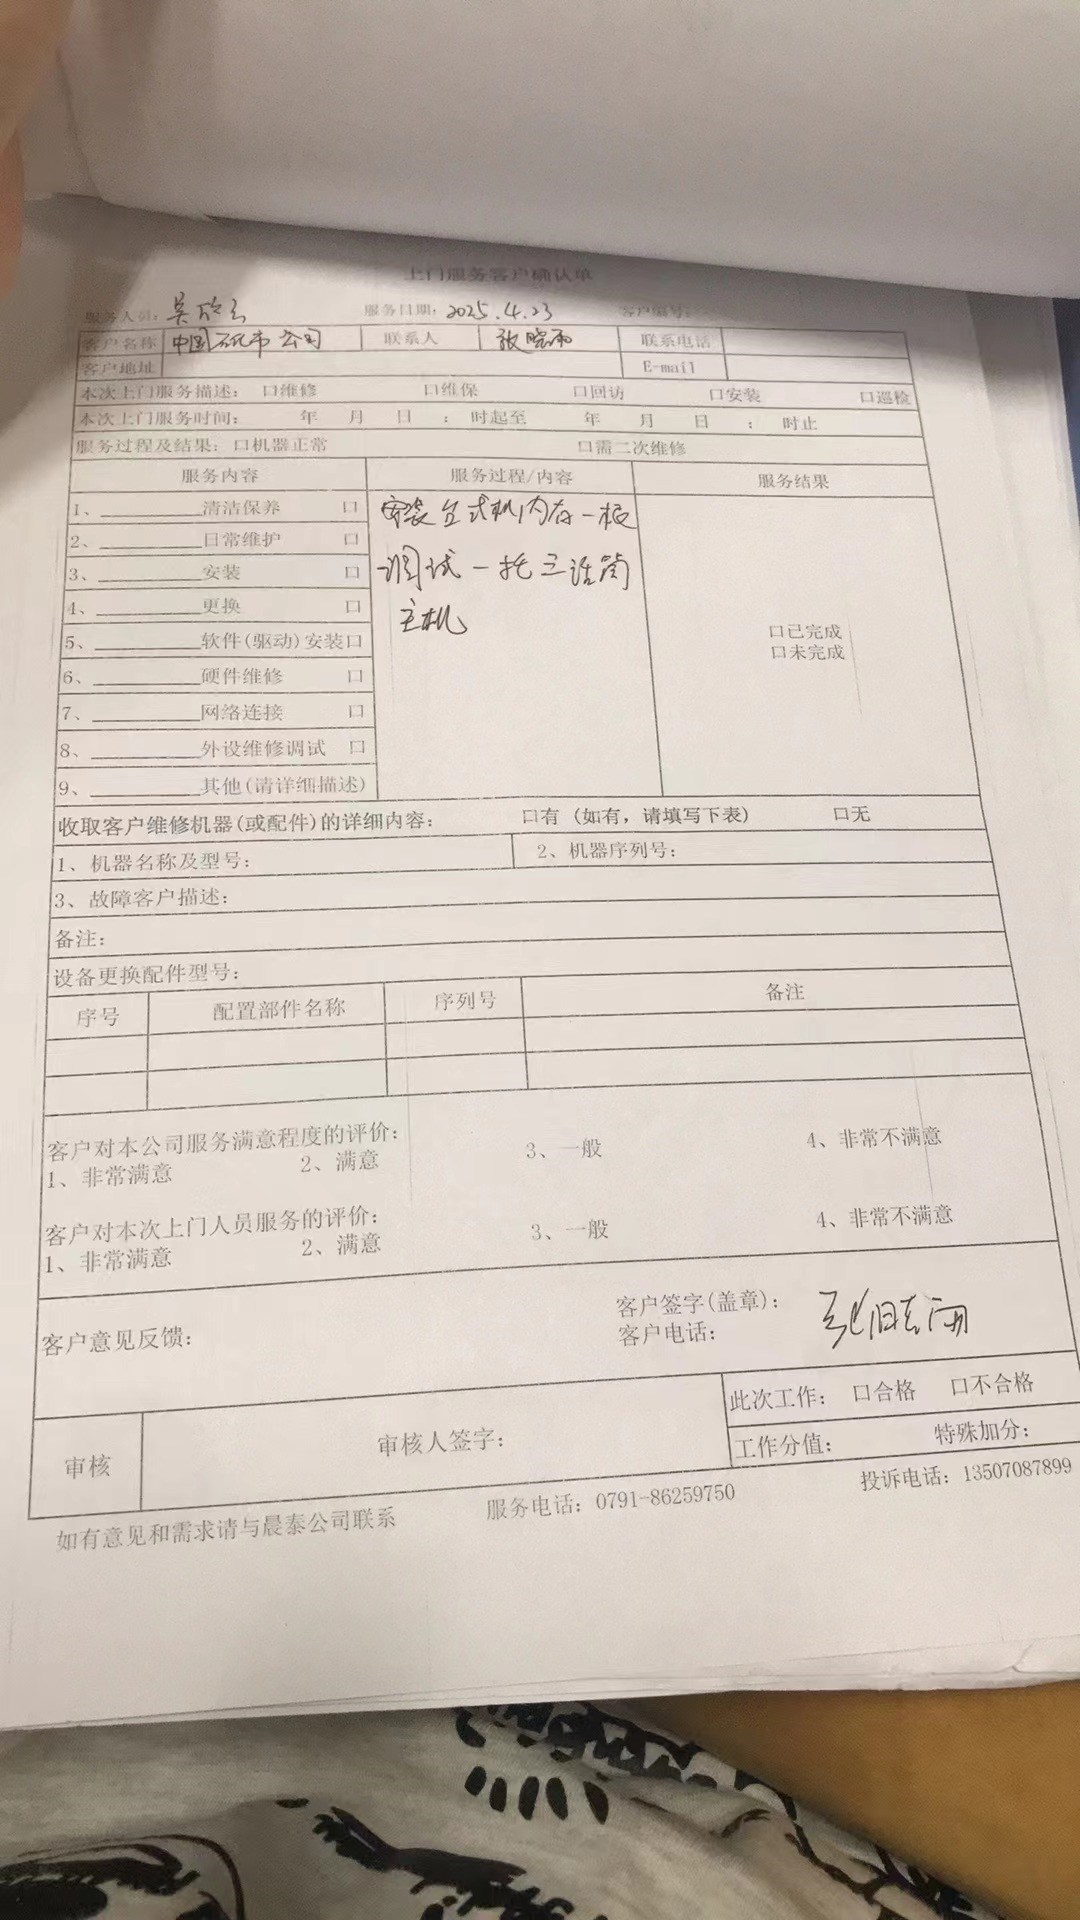 上门服务客户确认单
服务人员： 吴 服务日期： 2025.4.23 客户编号：
客户名称 中国石化市公司 联系人 张晓雨 联系电话
客户地址 E-mail
本次上门服务描述： 口维修 口维保 口回访 口安装 口巡检
本次上门服务时间： 年 月 日 ： 时起至 年 月 日 ： 时止
服务过程及结果：口机器正常 口需二次维修
服务内容 服务过程/内容 服务结果
1、________清洁保养 口
2、________日常维护 口
3、________安装 口
4、________更换 口
5、________软件(驱动)安装口
6、________硬件维修 口
7、________网络连接 口
8、________外设维修调试 口
9、________其他(请详细描述)
安装台式机内存一根
调试一托三话筒
主机
口已完成
口未完成
收取客户维修机器(或配件)的详细内容： 口有（如有，请填写下表） 口无
1、机器名称及型号： 2、机器序列号：
3、故障客户描述：
备注：
设备更换配件型号：
序号 配置部件名称 序列号 备注
客户对本公司服务满意程度的评价：
1、非常满意 2、满意 3、一般 4、非常不满意
客户对本次上门人员服务的评价：
1、非常满意 2、满意 3、一般 4、非常不满意
客户意见反馈： 客户签字(盖章)： 张晓雨
客户电话：
审核 审核人签字： 此次工作： 口合格 口不合格
工作分值： 特殊加分：
如有意见和需求请与晨泰公司联系 服务电话：0791-86259750 投诉电话：13507087899